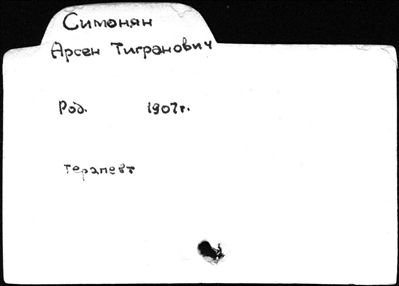 Симонян
Арсен Тигранович
Род. 1907г.
терапевт